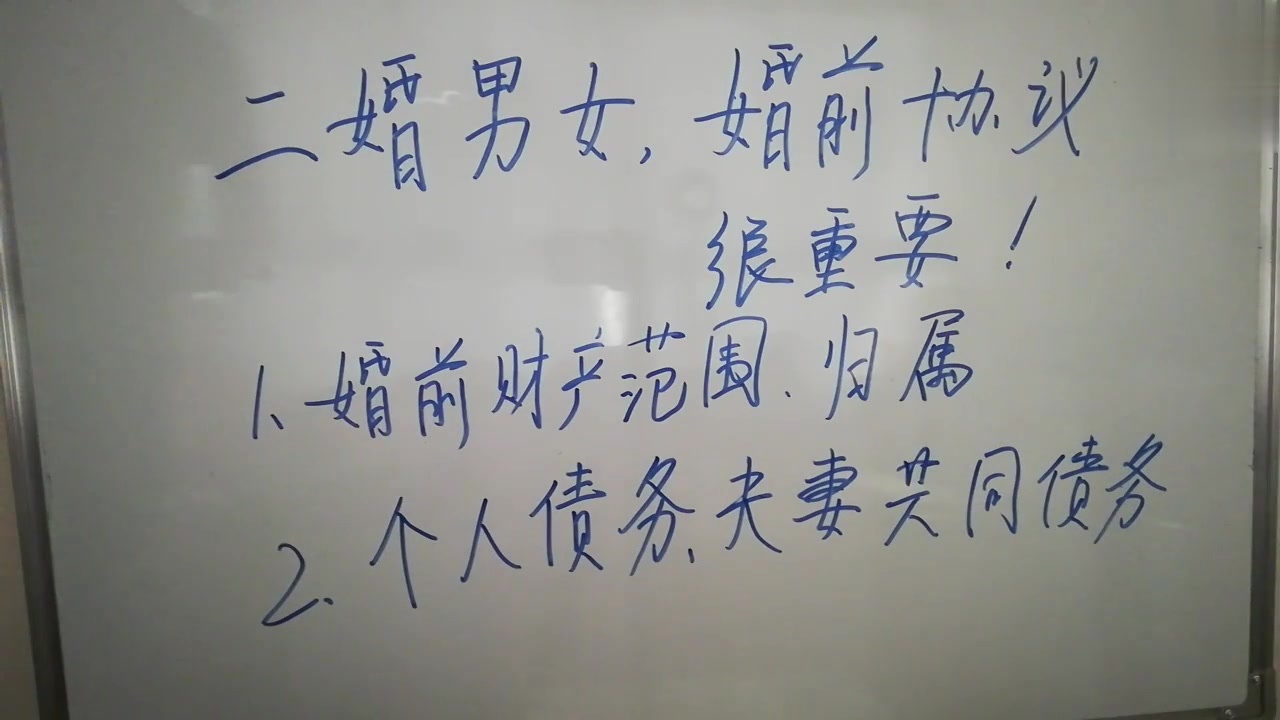 二婚男女,婚前协议
很重要!
1、婚前财产范围、归属
2、个人债务、夫妻共同债务